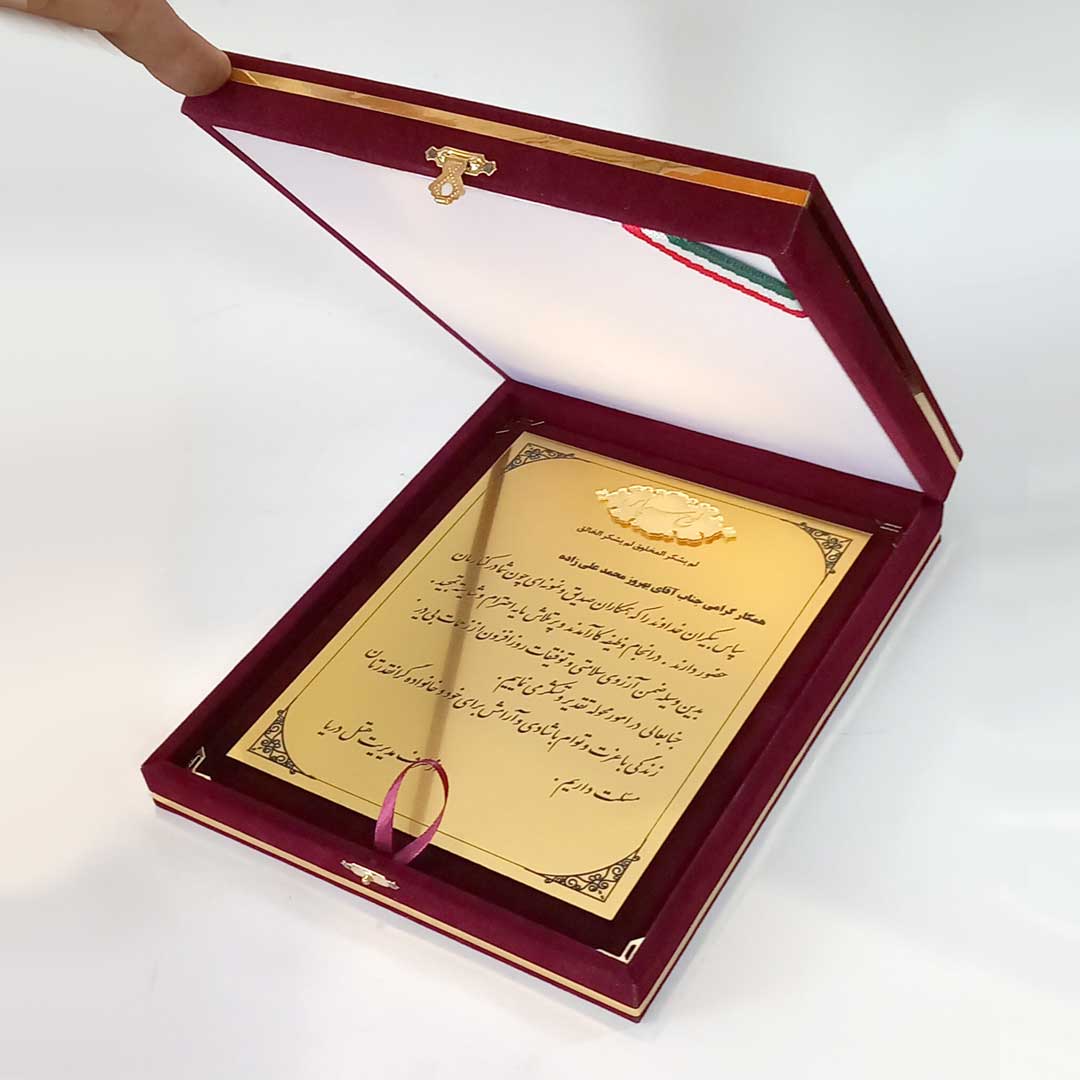 لم یشکر المخلوق لم یشکر الخالق
همکار گرامی جناب آقای بهروز محمد علی زاده
سپاس بیکران خداوند را که همکاران صدیق و دلسوزی چون شما در کنارمان
حضور دارند . در انجام وظیفه کارآمدند و پرتلاش مایه احترام و شایسته تمجید .
بدین وسیله ضمن آرزوی سلامتی و توفیقات روزافزون از زحمات بی دریغ
جنابعالی در امور محوله تقدیر و تشکر می نماییم .
زندگی با عزت و توام با شادی و آرامش برای خود و خانواده گرانقدرتان
مسئلت داریم .
مدیریت هتل دریا